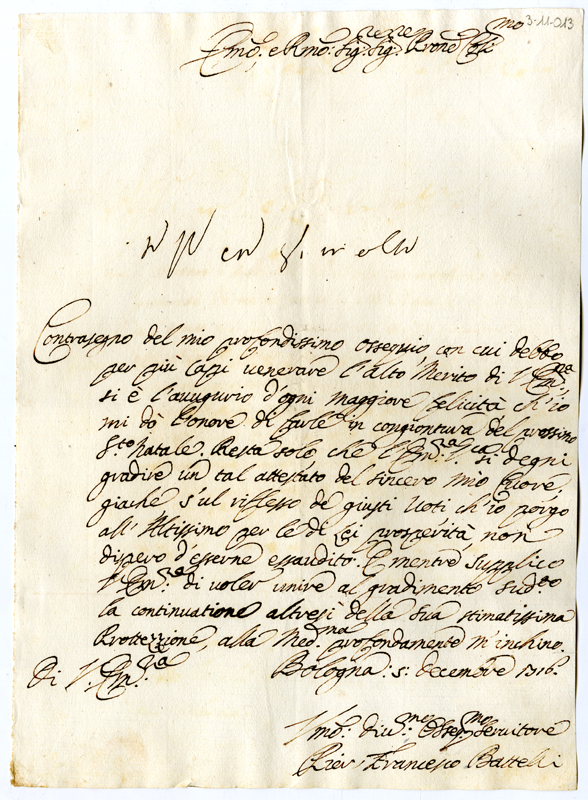 3-11-013
Emo: e Rmo: Sig:re Sig:re Prone Col:mo
Contrasegno del mio profondissimo ossequio, con cui debbo
per più capi venerare l'alto Merito di V. Em:za
si è l'auugurio d'ogni maggiore felicità ch'io
mi dò l'onore di farle in congiontura del prossimo
S:to Natale. Resta solo che l'Em:za V:ra si degni
gradire un tal attestato del sincero mio Cuore,
giache s'ul riflesso de giusti Voti ch'io porgo
all'Altissimo per le di Lei prosperità, non
dispero d'esserne essaudito. E mentre supplico
V. Em:za di voler unire al gradimento sud:to
la continuatione altresì della sua stimatissima
Prottezzione, alla Med:ma profondamente m'inchino.
Di V. Em:za Bologna: 5: decembre 1716.
Vmo: diu:mo Osseq:mo Servitore
Pier Francesco Battelli